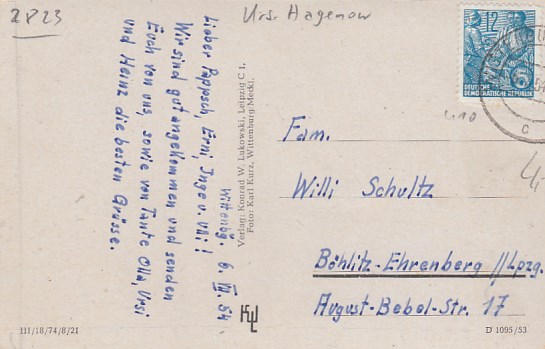 2823
Krs. Hagenow
12
DEUTSCHE
DEMOKRATISCHE REPUBLIK
Wittenbg. 6. 54
Lieber Pappsch, Erni, Inge u. Uli!
Wir sind gut angekommen und senden
Euch von uns, sowie von Tante Olla, Ursi
und Heinz die besten Grüsse.
Verlag: Konrad W. Lukowski, Leipzig C 1.
Foto: Karl Kurz, Wittenburg/Meckl.
410
4,-
Fam.
Willi Schultz
Böhlitz-Ehrenberg //Lpzg.
August-Bebel-Str. 17
III/18/74/8/21
D 1095/53